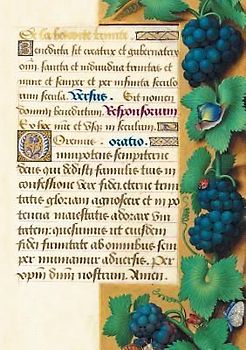 De la benoiste trinite.
Benedicta sit creatrix et gubernatrix
om̄iū sancta et individua trinitas et
nunc et semper et per infinita seculo
rum secula. Versus. Sit nomen
domini benedictum. Responsorium
Ex hoc nūc et usq; in seculum.
Oremus. oratio.
Omnipotens sempiterne
deus qui dedisti famulis tuis in
confessione vere fidei eterne trini
tatis gloriam agnoscere et in po
tencia maiestatis adorare uni
tatem: quesumus ut eiusdem
fidei firmitate ab omnibus sem
per muniamur adversis. Per
xp̄m dn̄m nostrum. Amen.